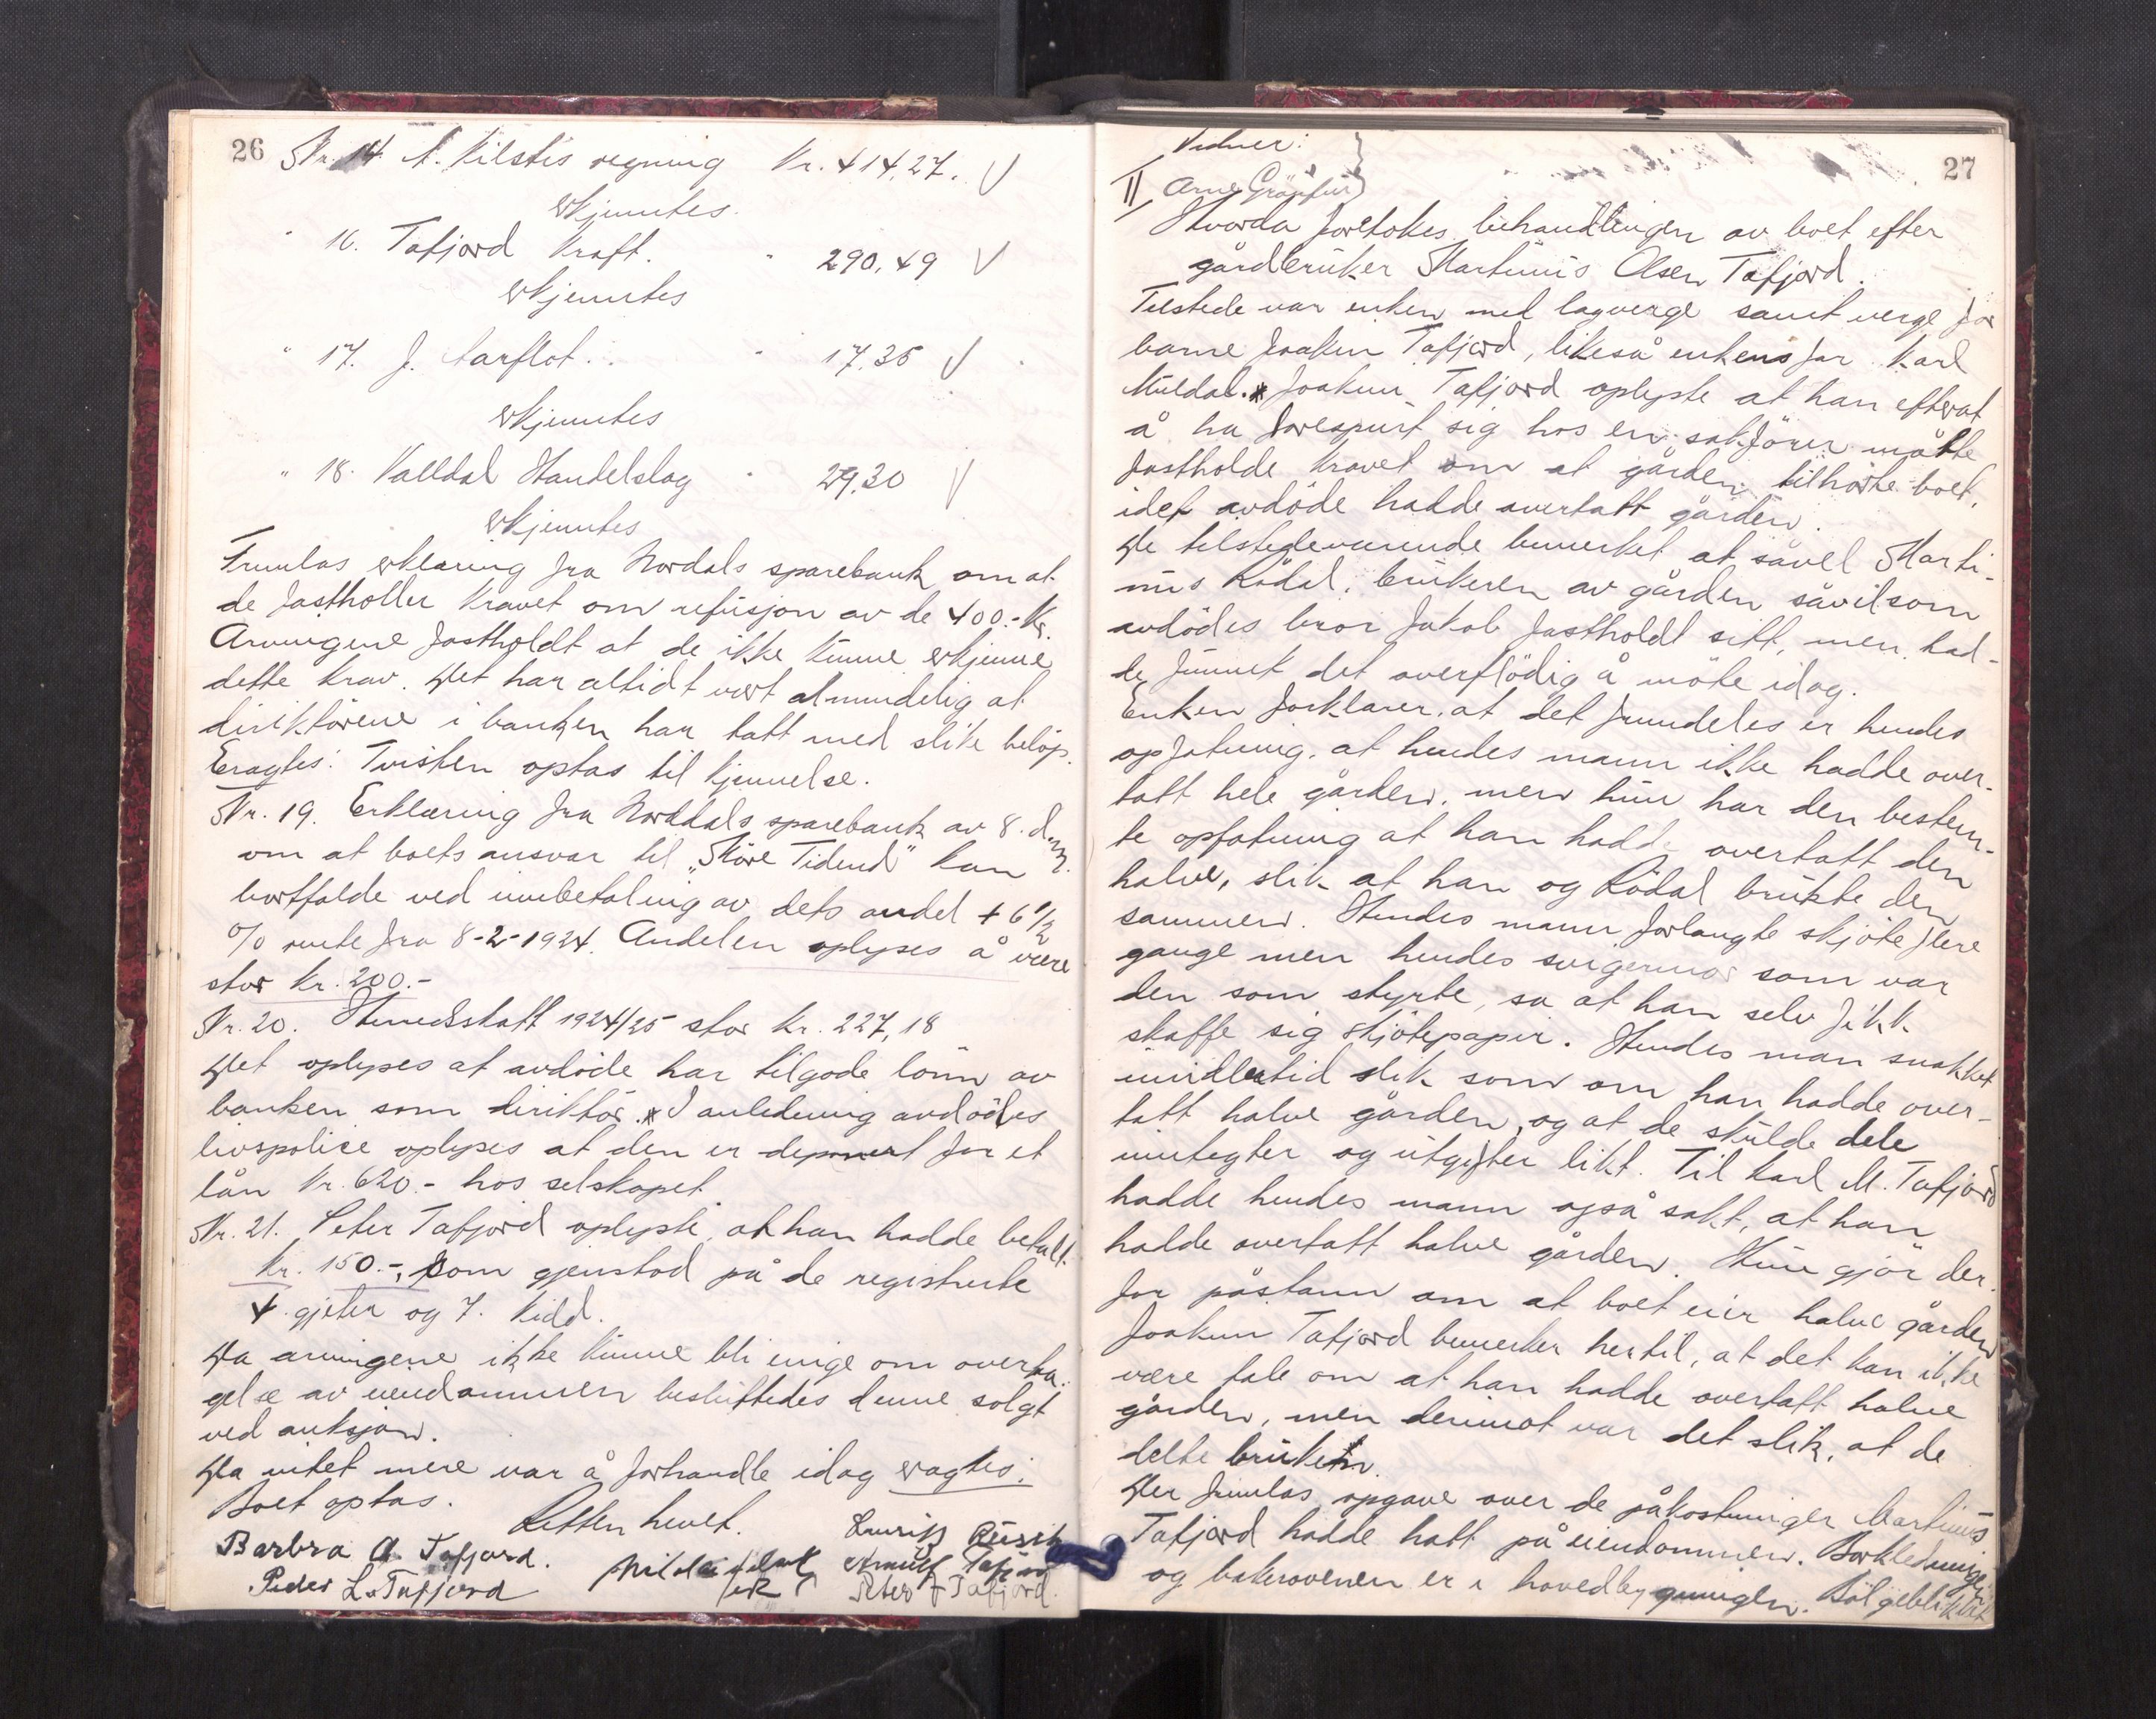 26
Nr. 14. A. Kilstis regning Kr. 414,27. V
erkjentes.
" 16. Tafjord Kraft. " 290,49 V
erkjentes
" 17. J. Aarflot. " 17,35 V
erkjentes
" 18. Valldal Handelslag " 29,30 V
erkjentes
Fremlas erklæring fra Nordals sparebank om at
de fastholler kravet om refusjon av de 400.- kr.
Arvingene fastholdt at de ikke kunne erkjenne
dette krav. Det har altidt vært almindelig at
direktørene i banken har tatt med slike beløp.
Eragtes: Tvisten optas til kjennelse.
Nr. 19. Erklæring fra Norddals sparebank av 8. d.m.
om at boets ansvar til „Møre Tidend" kan
bortfalde ved innbetaling av dets andel + 6 1/2
% rente fra 8-2-1924. Andelen oplyses å være
stor kr. 200.-
Nr. 20. Herredsskatt 1924/25 stor kr. 227,18
Det oplyses at avdöde har tilgode lönn av
banken som direktör. * I anledning avdödes
livspolice oplyses at den er deponert for et
lån kr. 620.- hos selskapet.
Nr. 21. Peter Tafjord oplyste, at han hadde betalt
kr. 150.-, som gjenstod på de registrerte
4 gjeter og 7. kidd.
Da arvingene ikke kunne bli enige om overta-
gelse av eiendommen besluttedes denne solgt
ved auksjon.
Da intet mere var å forhandle idag eragtes:
Boet optas.
Retten hevet.
Barbra A Tafjord.
Peder L. Tafjord
Peter Tafjord.
27
Vidner:
II Arne
Hvorda foretokes behandlingen av boet efter
gårdbruker Martinus Olsen Tafjord.
Tilstede var enken med lagverge samt verge for
barne Joakim Tafjord, likeså enkens far Karl
Muldal. * Joakim Tafjord oplyste at han efterat
å ha forespurt sig hos en sakförer måtte
fastholde kravet om at gården tilhörte boet,
idet avdöde hadde overtatt gården.
De tilstedeværende bemerket at såvel Marti-
nus Rödal, brukeren av gården såvelsom
avdödes bror Jakob fastholdt sitt, men had-
de funnet det overflödig å möte idag.
Enken forklarer, at det fremdeles er hendes
opfatning, at hendes mann ikke hadde over-
tatt hele gården, men hun har den bestem-
te opfatning at han hadde overtatt den
halve, slik at han og Rödal brukte den
sammen. Hendes mann forlangte skjöte flere
gange men hendes svigermor som var
den som styrte, sa at han selv fikk
skaffe sig skjötepapir. Hendes man snakket
imidlertid slik som om han hadde over-
tatt halve gården, og at de skulde dele
inntegter og utgifter likt. Til Karl M. Tafjord
hadde hendes mann også sakt, at han
hadde overtatt halve gården. Hun gjör der-
for påstann om at boet eier halve gården
Joakim Tafjord bemerker hertil, at det kan ikke
være tale om at han hadde overtatt halve
gården, men derimot var det slik, at de
delte bruken.
Der fremlas opgave over de påkostninger Martinus
Tafjord hadde hatt på eiendommen. Borkledningen
og bakerovenen er i hovedbygningen. Bölgeblikket